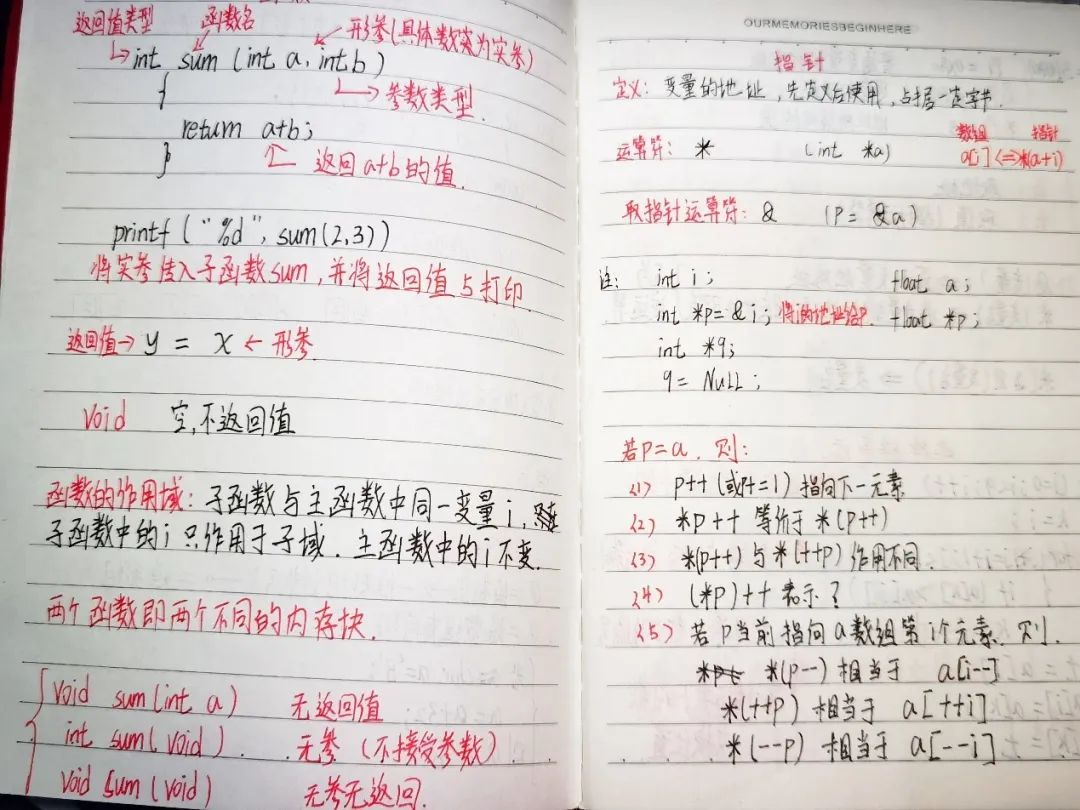 返回值类型 函数名 形参(具体数集为实参)
int sum (int a, int b)
{ 参数类型
return a+b;
} 返回a+b的值.
printf ("%d", sum(2,3))
将实参传入子函数sum,并将返回值与打印
返回值→ y = x ← 形参
void 空,不返回值
函数的作用域: 子函数与主函数中同一变量i,
子函数中的i只作用于子域. 主函数中的i不变.
两个函数即两个不同的内存块.
void sum (int a) 无返回值
int sum (void) 无参 (不接受参数)
void sum (void) 无参无返回.
OURMEMORIESBEGINHERE
指针
定义: 变量的地址, 先定义后使用, 占据一定字节.
数组 指针
运算符: * (int *a) a[i] <=> *(a+i)
取指针运算符: & (P = &a)
注: int i; float a;
int *p= &i; 将i的地址给p. float *p;
int *q;
q= NuLL;
若p=a. 则:
(1) p++ (或p+=1) 指向下一元素
(2) *p++ 等价于 *(p++)
(3) *(p++) 与 *(++p) 作用不同.
(4) (*p)++ 表示?
(5) 若p当前指向a数组第i个元素. 则.
*(p--) 相当于 a[i--]
*(++p) 相当于 a[++i]
*(--p) 相当于 a[--i]